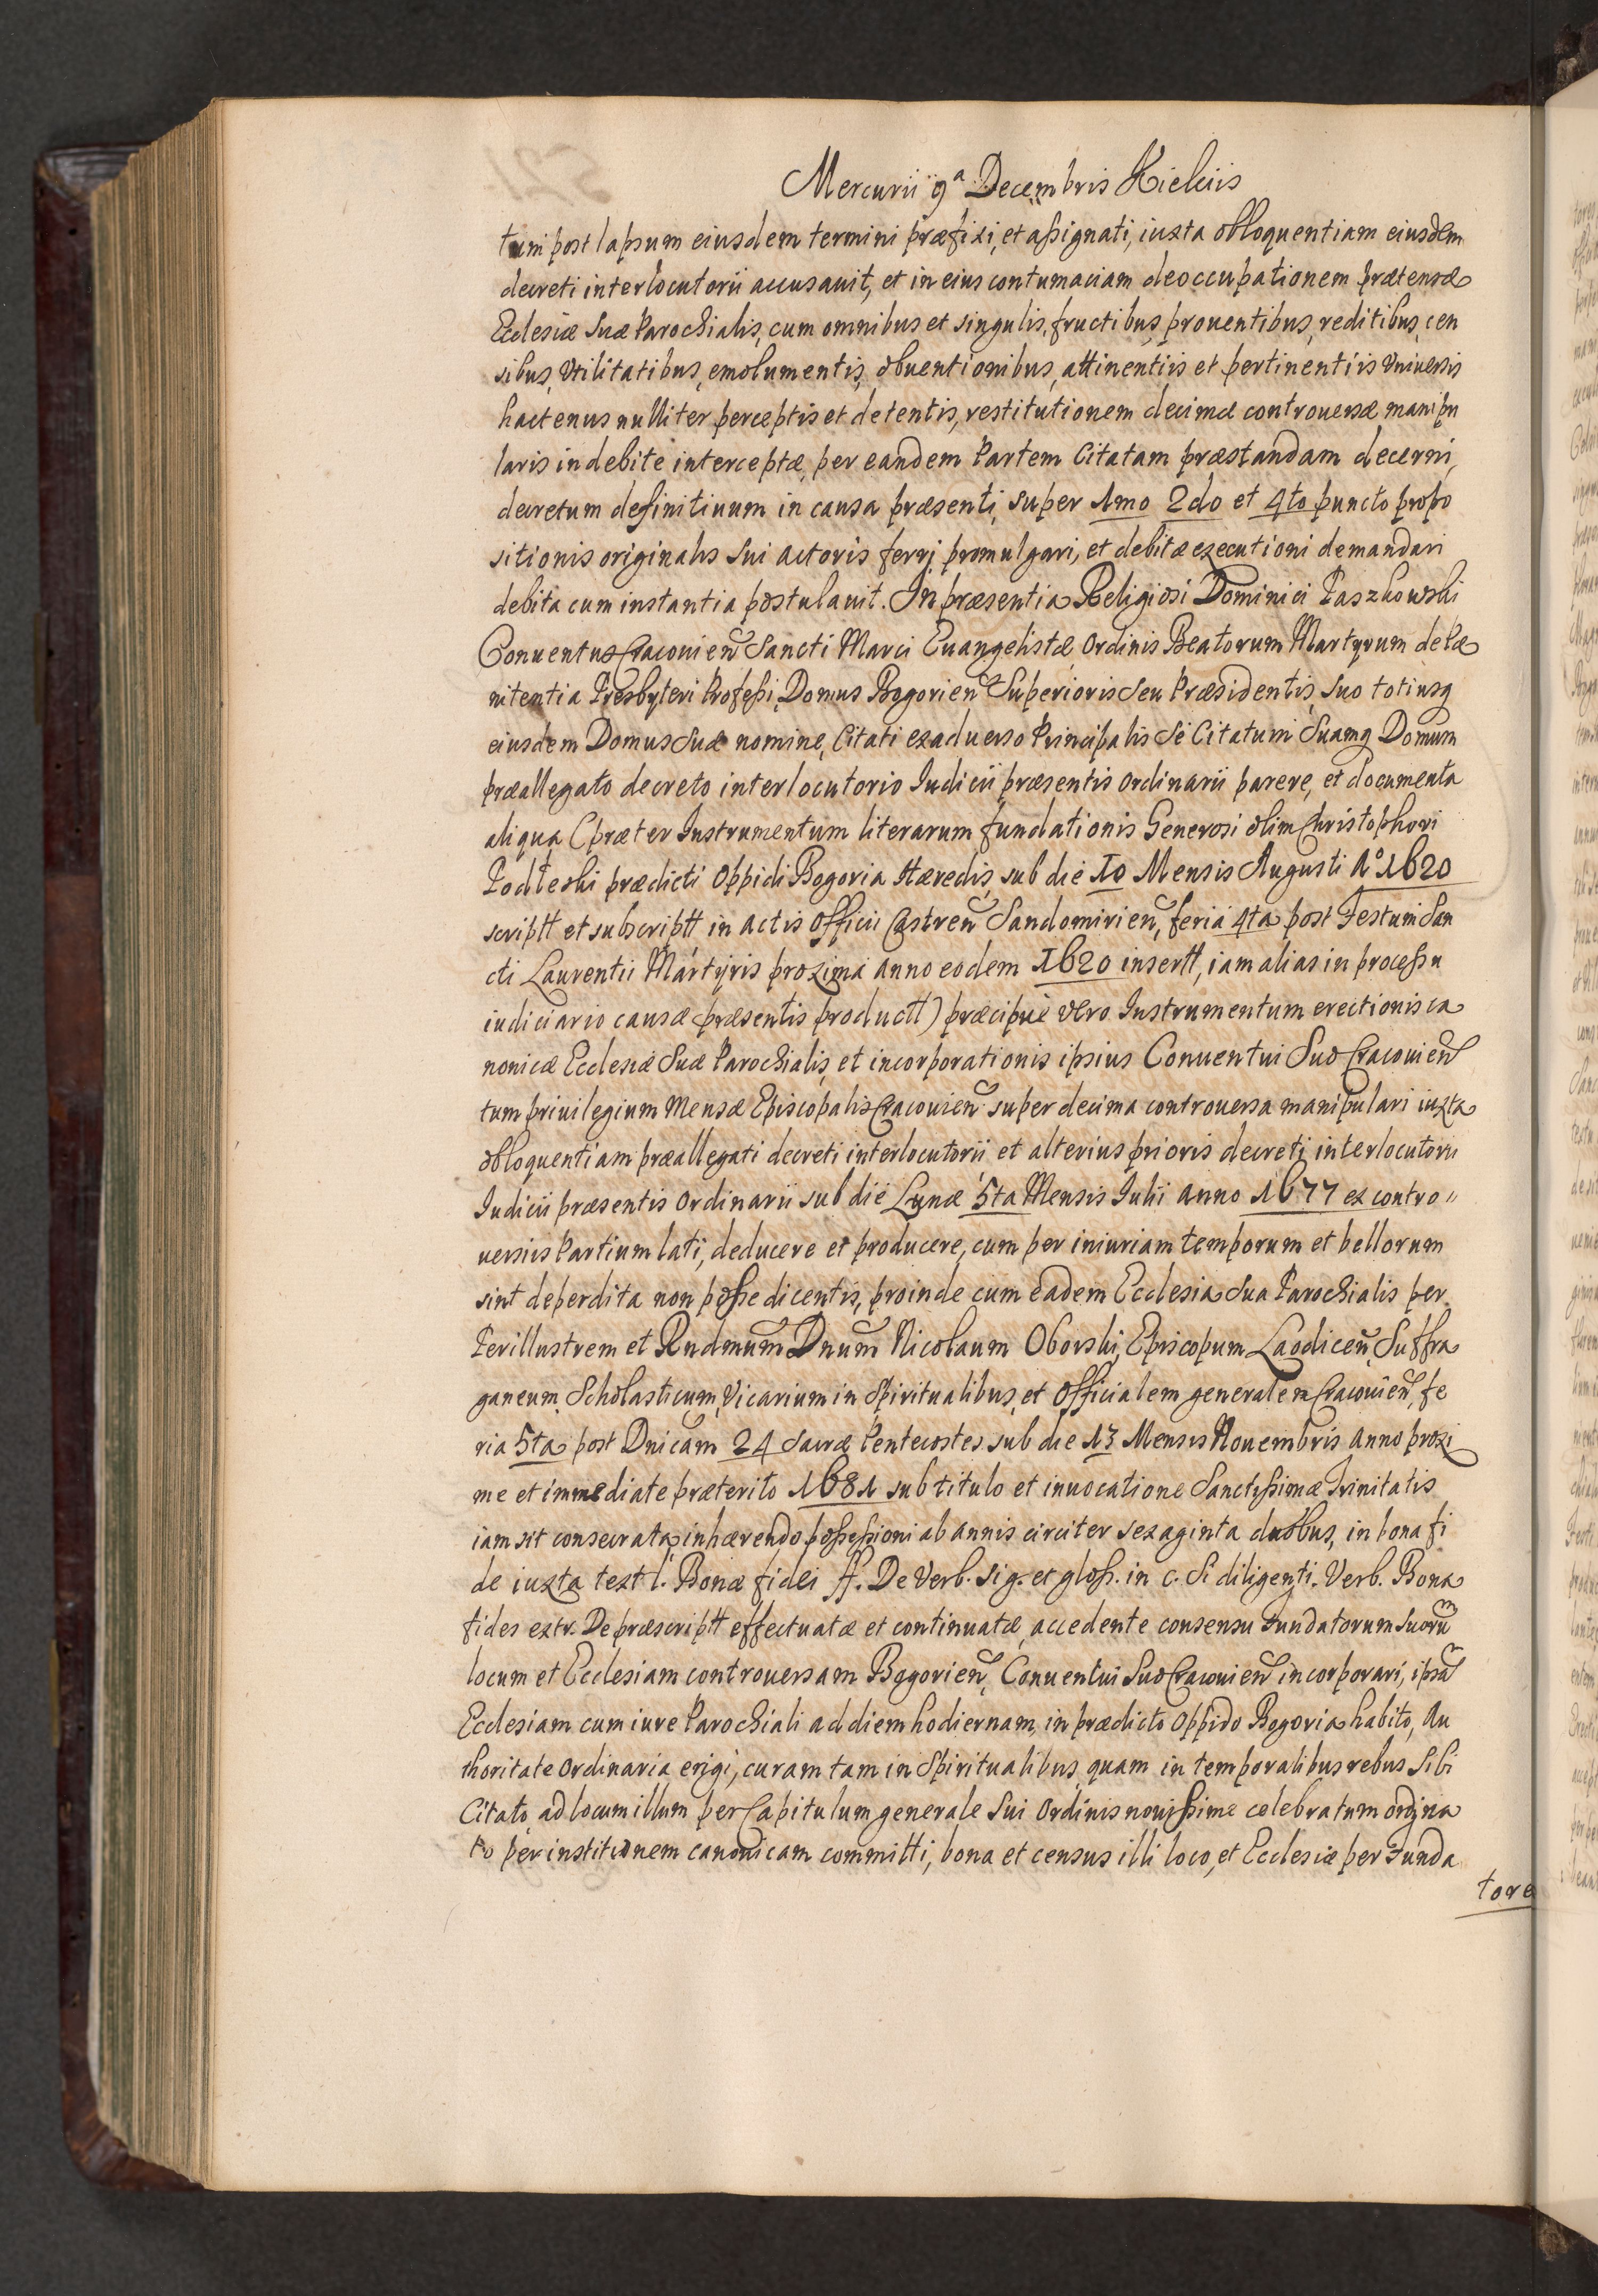 Mercurii 9a Decembris Kielciis
tum post lapsum eiusdem termini præfixi, et aßignati, iuxta obloquentiam eiusdem
decreti interlocutorii accusauit, et in eius contumaciam deoccupationem prætensæ
Ecclesiæ Suæ Parochialis, cum omnibus et singulis, fructibus, prouentibus, reditibus, cen
sibus, vtilitatibus, emolumentis, obuentionibus, attinentiis et pertinentiis vniuersis
hactenus nulliter perceptis et detentis, restitutionem decimæ controuersæ manipu
laris indebite interceptæ, per eandem Partem Citatam præstandam decerni,
decretum definitiuum in causa præsenti, super 1mo 2do et 4to puncto propo
sitionis originalis sui actoris ferri, promulgari, et debitæ executioni demandari
debita cum instantia postulauit. In præsentia Religiosi Dominici Paszkowski
Conuentus Cracouien Sancti Marci Euangelistæ Ordinis Beatorum Martyrum de Pæ
nitentia Presbyteri Profeßi, Domus Bogorien Superioris seu Præsidentis, suo totiusq
eiusdem Domus suæ nomine, Citati ex aduerso Principalis se Citatum Suamq Domum
præallegato decreto interlocutorio Iudicii præsentis ordinarii parere, et documenta
aliqua (præter Instrumentum literarum fundationis Generosi olim Christophori
Podłeski prædicti Oppidi Bogoria Hæredis, sub die 10 Mensis Augusti Ao 1620
scriptt et subscriptt in actis Officii Castren Sandomirien, feria 4ta post Festum San
cti Laurentii Martyris proxima anno eodem 1620 insertt, iam alias in proceßu
iudiciario causæ præsentis productt) præcipue vero Instrumentum erectionis ca
nonicæ Ecclesiæ Suæ Parochialis, et incorporationis ipsius Conuentui Suo Cracouien
tum priuilegium Mensæ Episcopalis Cracouien super decima controuersa manipulari iuxta
obloquentiam præallegati decreti interlocutorii et alterius prioris decreti interlocutorii
Iudicii præsentis Ordinarii sub die Lunæ 5ta Mensis Iulii anno 1677 ex contro"
uersiis Partium lati, deducere et producere, cum per iniuriam temporum et bellorum
sint deperdita non poße dicentis, proinde cum eadem Ecclesia Sua Parochialis per
Perillustrem et Rndmum Dnum Nicolaum Oborski, Episcopum Laodicen, Suffra
ganeum, Scholasticum, Vicarium in Spiritualibus, et Officialem generalem Cracouien, fe
ria 5ta post Dnicam 24 Sacræ Pentecostes sub die 13 Mensis Nouembris anno proxi
me et immediate præterito 1681 sub titulo et inuocatione Sanctißimæ Trinitatis
iam sit consecrata, inhærendo poßeßioni ab annis circiter sexaginta duobus, in bona fi
de iuxta textt l. Bonæ fidei ff. De Verb. sig. et gloß. in c. Si diligenti. Verb. Bona
fides extr. De præscriptt effectuatæ et continuatæ, accedente consensu Fundatorum suorum
locum et Ecclesiam controuersam Bogorien, Conuentui Suo Cracouien incorporari, ipsam
Ecclesiam cum iure Parochiali ad diem hodiernam, in prædicto Oppido Bogoria habito, Au
thoritate Ordinaria erigi, curam tam in Spiritualibus, quam in temporalibus rebus Sibi
Citato, ad locum illum per Capitulum generale Sui Ordinis nouißime celebratum ordina
to per institutionem canonicam committi, bona et census illi loco, et Ecclesiæ per Funda
tore